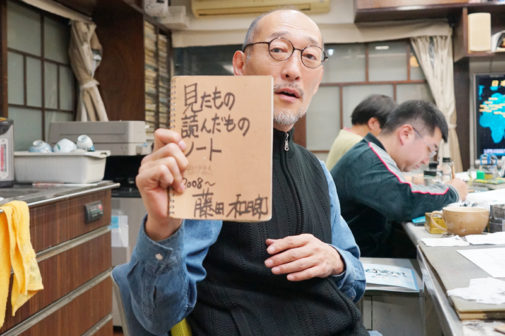 見たもの
読んだもの
ノート
2008～
藤田和日郎